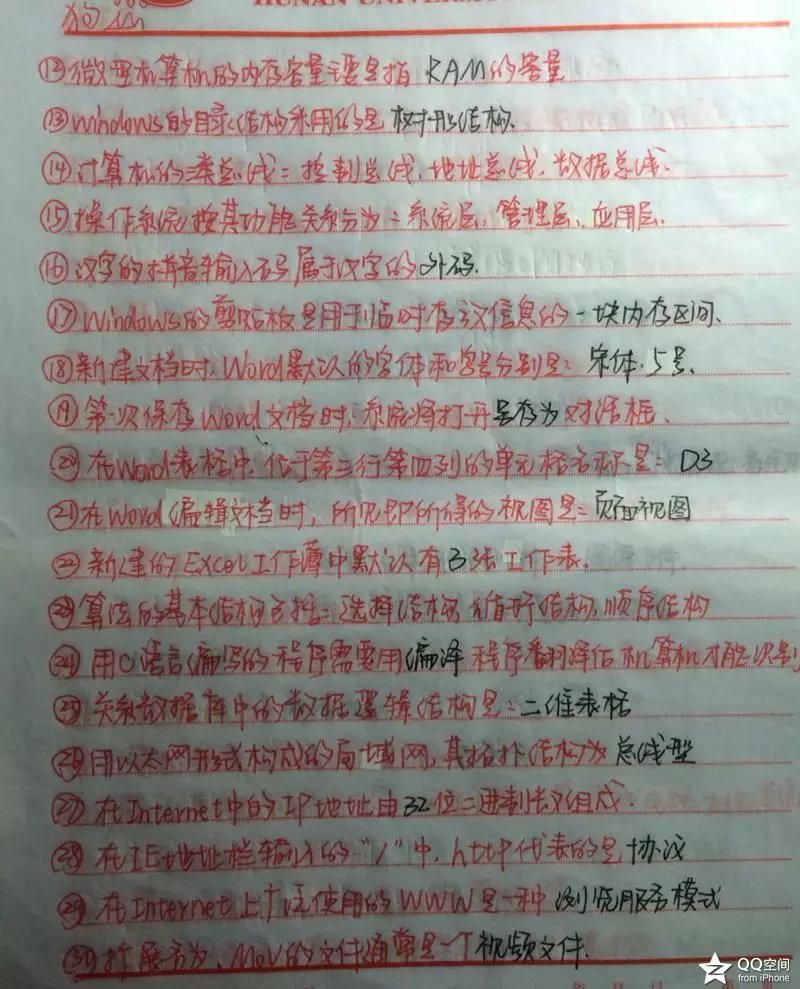 HUNAN UNIVERS
⑫微型机算机的内存容量主要是指 RAM的容量
⑬Windows的目录结构采用的是 树形结构.
⑭计算机的三类总线：控制总线，地址总线，数据总线.
⑮操作系统按其功能关系分为：系统层、管理层、应用层.
⑯汉字的拼音输入码属于汉字的 外码.
⑰Windows的剪贴板是用于临时存放信息的一块内存区间.
⑱新建文档时，Word默认的字体和字号分别是：宋体.5号.
⑲第一次保存Word文档时，系统将打开另存为对话框.
⑳在Word表格中，位于第三行第四列的单元格名称是：D3
㉑在Word编辑文档时，所见即所得的视图是：页面视图
㉒新建的Excel工作薄中默认有3张工作表.
㉓算法的基本结构包括：选择结构，循环结构，顺序结构
㉔用C语言编写的程序需要用编译程序翻译后机算机才能识别
㉕关系数据库中的数据逻辑结构是：二维表格
㉖用以太网形式构成的局域网，其拓扑结构为总线型
㉗在Internet中的IP地址由32位二进制数组成.
㉘在IE地址栏输入的"/"中，http代表的是协议
㉙在Internet上广泛使用的WWW是一种浏览服务模式
㉚扩展名为.MoV的文件通常是一个视频文件.
QQ空间
from iPhone